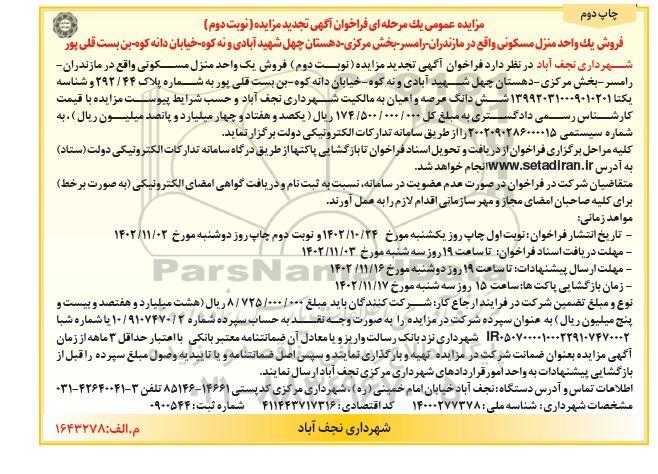 چاپ دوم
مزایده عمومی یك مرحله ای فراخوان آگهی تجدید مزایده (نوبت دوم )
فروش یك واحد منزل مسکونی واقع در مازندران-رامسر-بخش مرکزی-دهستان چهل شهید آبادی و نه کوه-خیابان دانه کوه-بن بست قلی پور
شهرداری نجف آباد در نظر دارد فراخوان آگهی تجدید مزایده (نوبت دوم ) فروش یک واحد منزل مسکونی واقع در مازندران-
رامسر-بخش مرکزی-دهستان چهل شهید آبادی و نه کوه-خیابان دانه کوه-بن بست قلی پور به شماره پلاک ۲۹۲/۴۴ و شناسه
یکتا ۱۳۹۹۲۰۳۱۰۰۰۹۰۱۰۲۰۱ شش دانگ عرصه و اعیان به مالکیت شهرداری نجف آباد و حسب شرایط پیوست مزایده با قیمت
کارشناس رسمی دادگستری به مبلغ کل ۱۷۴/۵۰۰/۰۰۰/۰۰۰ ریال ( یکصد و هفتاد و چهار میلیارد و پانصد میلیون ریال )، به
شماره سیستمی ۲۰۰۲۰۹۰۲۸۶۰۰۰۰۱۵ را از طریق سامانه تدارکات الکترونیکی دولت برگزار نماید.
کلیه مراحل برگزاری فراخوان از دریافت و تحویل اسناد فراخوان تا بازگشایی پاکتها از طریق درگاه سامانه تدارکات الکترونیکی دولت (ستاد)
به آدرس www.setadiran.ir انجام خواهد شد.
متقاضیان شرکت در فراخوان در صورت عدم عضویت در سامانه، نسبت به ثبت نام و دریافت گواهی امضای الکترونیکی (به صورت برخط)
برای کلیه صاحبان امضای مجاز و مهر سازمانی اقدام لازم را به عمل آورند.
مواعد زمانی:
- تاریخ انتشار فراخوان : نوبت اول چاپ روز یکشنبه مورخ ۱۴۰۲/۱۰/۲۴ و نوبت دوم چاپ روز دوشنبه مورخ ۱۴۰۲/۱۱/۰۲
- مهلت دریافت اسناد فراخوان: تا ساعت ۱۹ روز سه شنبه مورخ ۱۴۰۲/۱۱/۰۳
- مهلت ارسال پیشنهادات: تا ساعت ۱۹ روز دوشنبه مورخ ۱۴۰۲/۱۱/۱۶
- زمان بازگشایی پاکت ها: ساعت ۱۵ روز سه شنبه مورخ ۱۴۰۲/۱۱/۱۷
نوع و مبلغ تضمین شرکت در فرایند ارجاع کار: شرکت کنندگان باید مبلغ ۸/۷۲۵/۰۰۰/۰۰۰ ریال (هشت میلیارد و هفتصد و بیست و
پنج میلیون ریال) به عنوان سپرده شرکت در مزایده را به صورت وجه نقد به حساب سپرده شماره ۱۰/۹۱۰۷۴۷۰/۲ با شماره شبا
IR۰۵۰۷۰۰۰۰۱۰۰۰۲۲۹۱۰۷۴۷۰۰۲ شهرداری نزد بانک رسالت واریز و یا معادل آن ضمانتنامه معتبر بانکی با اعتبار حداقل ۳ ماهه از زمان
آگهی مزایده بعنوان ضمانت شرکت در مزایده تهیه و بارگذاری نمایند و سپس اصل ضمانتنامه و یا تایید یه وصول مبلغ سپرده را قبل از
بازگشایی پیشنهادات به واحد امور قراردادهای شهرداری مرکزی نجف آباد ارسال نمایند.
اطلاعات تماس و آدرس دستگاه: نجف آباد خیابان امام خمینی (ره) ، شهرداری مرکزی کد پستی ۱۴۶۶۱-۸۵۱۴۶ تلفن ۳-۴۲۶۴۰۰۴۱-۰۳۱
مشخصات شهرداری : شناسه ملی : ۱۴۰۰۰۲۷۷۳۷۸ کد اقتصادی : ۴۱۱۴۴۳۷۱۷۳۱۶ شماره ثبت : ۰۹۰۰۵۴۴
شهرداری نجف آباد
م.الف:۱۶۴۳۲۷۸